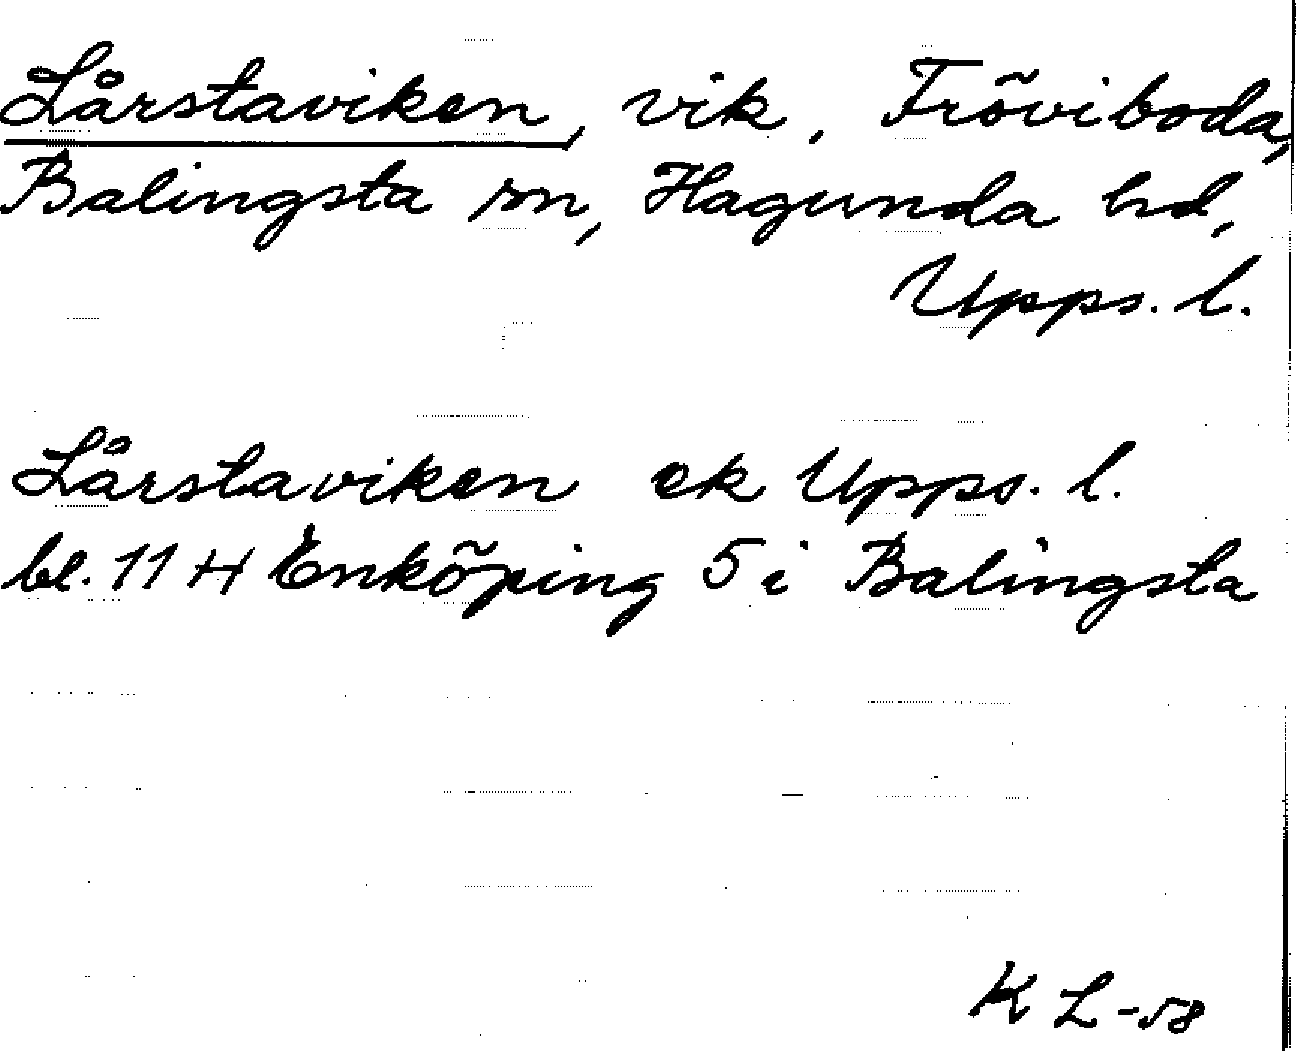 Lårstaviken, vik, Fröviboda,
Balingsta sn, Hagunda hd,
Upps. l.
Lårstaviken ek Upps. l.
bl. 11 H Enköping 5 i Balingsta
K L -58